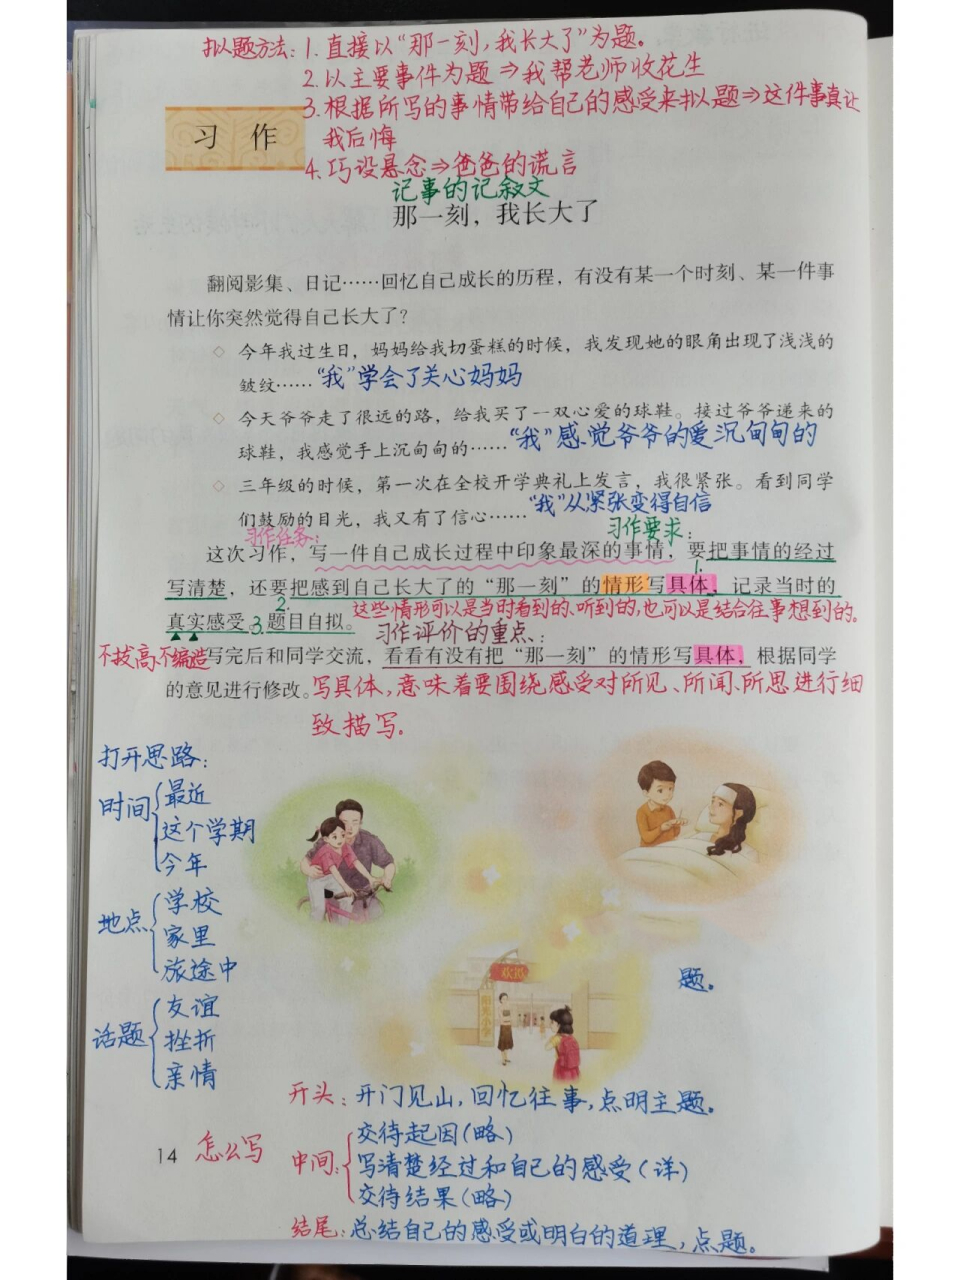 拟题方法：1.直接以“那一刻，我长大了”为题。
2.以主要事件为题⇒我帮老师收花生
3.根据所写的事情带给自己的感受来拟题⇒这件事真让
我后悔
4.巧设悬念⇒爸爸的谎言
习 作
记事的记叙文
那一刻，我长大了
翻阅影集、日记……回忆自己成长的历程，有没有某一个时刻、某一件事
情让你突然觉得自己长大了？
◇ 今年我过生日，妈妈给我切蛋糕的时候，我发现她的眼角出现了浅浅的
皱纹……“我”学会了关心妈妈
◇ 今天爷爷走了很远的路，给我买了一双心爱的球鞋。接过爷爷递来的
球鞋，我感觉手上沉甸甸的……“我”感觉爷爷的爱沉甸甸的
◇ 三年级的时候，第一次在全校开学典礼上发言，我很紧张。看到同学
们鼓励的目光，我又有了信心……“我”从紧张变得自信
习作任务：
习作要求：
这次习作，写一件自己成长过程中印象最深的事情，要把事情的经过
1.
写清楚，还要把感到自己长大了的“那一刻”的情形写具体，记录当时的
2.
这些情形可以是当时看到的、听到的，也可以是结合往事想到的。
真实感受，3.题目自拟。
习作评价的重点：
不拔高不编造
写完后和同学交流，看看有没有把“那一刻”的情形写具体，根据同学
的意见进行修改。写具体，意味着要围绕感受对所见、所闻、所思进行细
致描写。
打开思路：
时间
最近
这个学期
今年
地点
学校
家里
旅途中
话题
友谊
挫折
亲情
欢迎
阳光小学
题。
怎么写
开头：开门见山，回忆往事，点明主题。
中间：
交待起因（略）
写清楚经过和自己的感受（详）
交待结果（略）
结尾：总结自己的感受或明白的道理，点题。
14